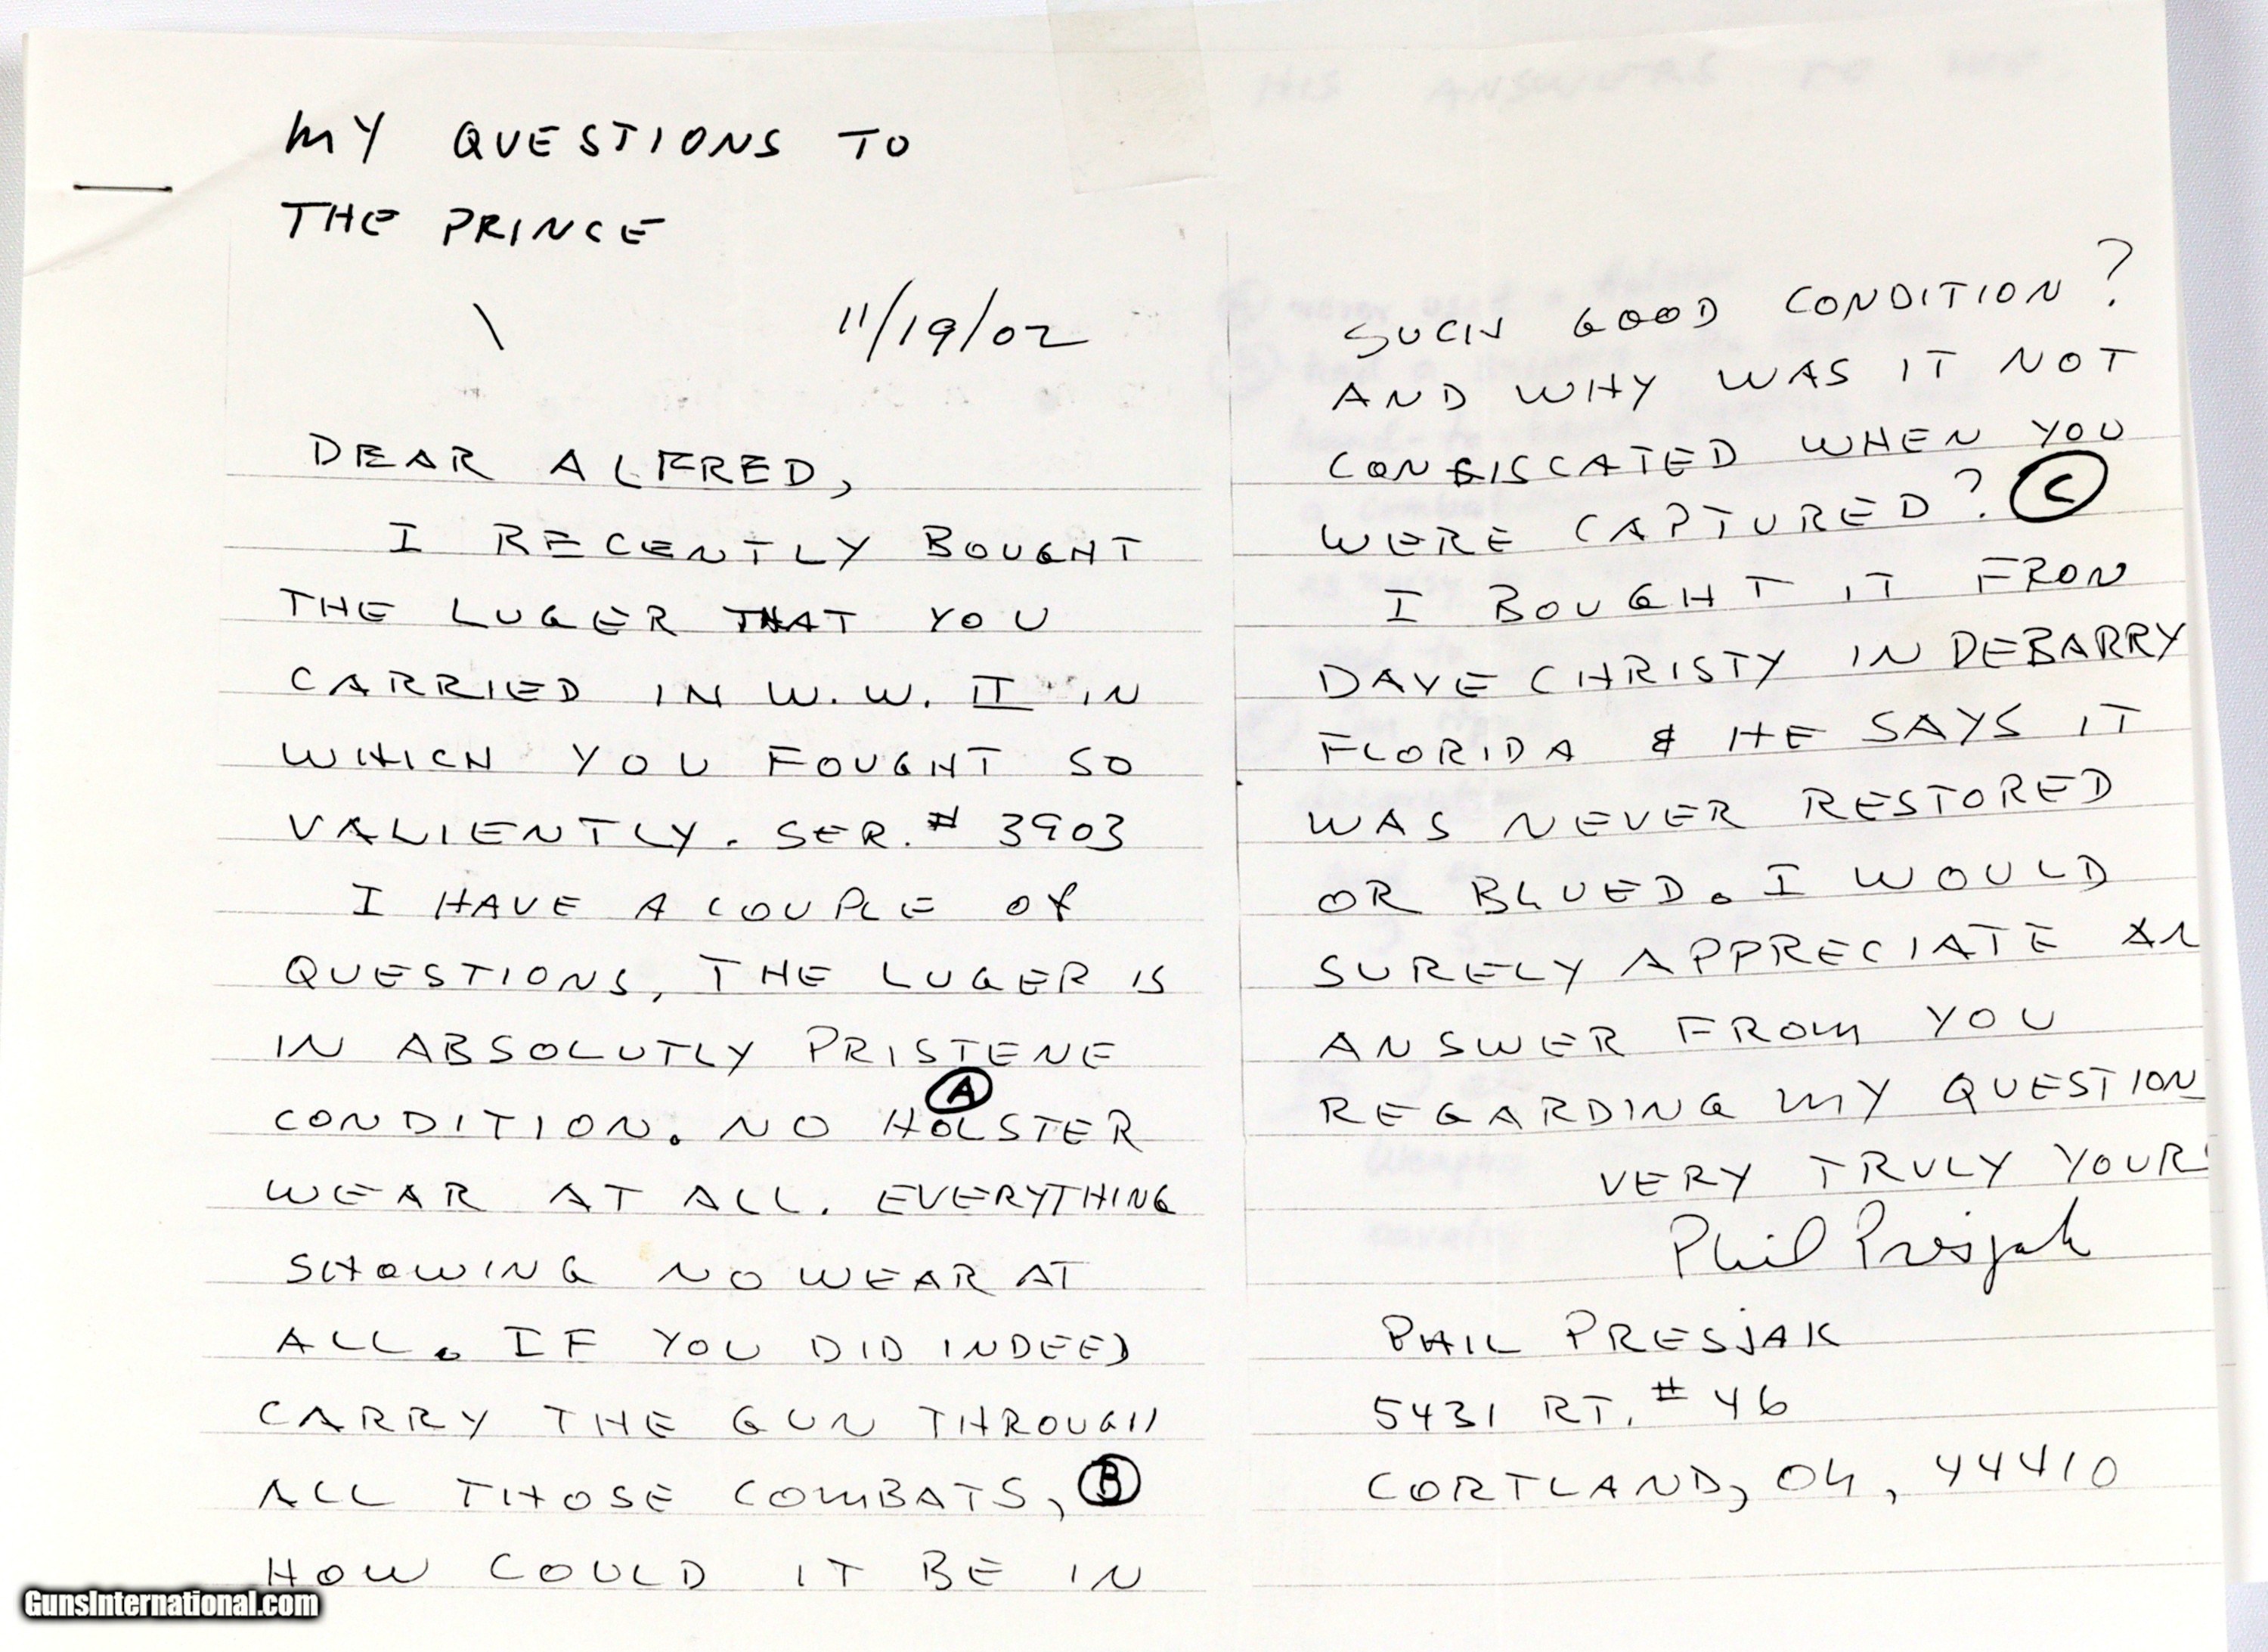 MY QUESTIONS TO
THE PRINCE
11/19/02
DEAR ALFRED,
I RECENTLY BOUGHT
THE LUGER THAT YOU
CARRIED IN W.W. II IN
WHICH YOU FOUGHT SO
VALIENTLY. SER. # 3903
I HAVE A COUPLE OF
QUESTIONS, THE LUGER IS
IN ABSOLUTLY PRISTENE
A
CONDITION. NO HOLSTER
WEAR AT ALL. EVERYTHING
SHOWING NO WEAR AT
ALL. IF YOU DID INDEED
CARRY THE GUN THROUGH
ALL THOSE COMBATS, B
HOW COULD IT BE IN
SUCH GOOD CONDITION?
AND WHY WAS IT NOT
CONFISCATED WHEN YOU
WERE CAPTURED? C
I BOUGHT IT FRON
DAVE CHRISTY IN DEBARRY
FLORIDA & HE SAYS IT
WAS NEVER RESTORED
OR BLUED. I WOULD
SURELY APPRECIATE AN
ANSWER FROM YOU
REGARDING MY QUESTION
VERY TRULY YOUR
Phil Presjak
PHIL PRESJAK
5431 RT. # 46
CORTLAND, OH, 44410
HIS ANSWERS TO ME
GunsInternational.com